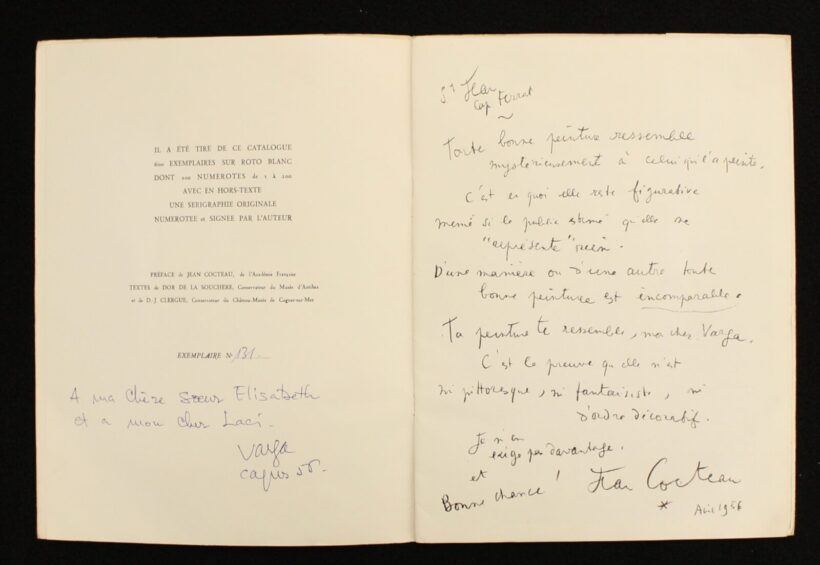 IL A ÉTÉ TIRE DE CE CATALOGUE
600 EXEMPLAIRES SUR ROTO BLANC
DONT 200 NUMEROTES de 1 à 200
AVEC EN HORS-TEXTE
UNE SERIGRAPHIE ORIGINALE
NUMEROTEE et SIGNEE PAR L'AUTEUR
PRÉFACE de JEAN COCTEAU, de l'Académie Française
TEXTES de DOR DE LA SOUCHERE, Conservateur du Musée d'Antibes
et de D. J. CLERGUE, Conservateur du Château-Musée de Cagnes-sur-Mer
EXEMPLAIRE N° 131
A ma chère Sœur Elisabeth
et a mon cher Laci.
Varga
St Jean
Cap Ferrat
Toute bonne peinture ressemble
mystérieusement à celui qui l'a peinte.
C'est en quoi elle reste figurative
même si le public estime qu'elle ne
"représente" rien.
D'une manière ou d'une autre toute
bonne peinture est incomparable.
Ta peinture te ressemble, mon cher Varga.
C'est la preuve qu'elle n'est
ni pittoresque, ni fantaisiste, ni
d'ordre décoratif.
Je n'en
exige pas davantage.
et
Bonne chance !
Jean Cocteau
*
Avril 1956